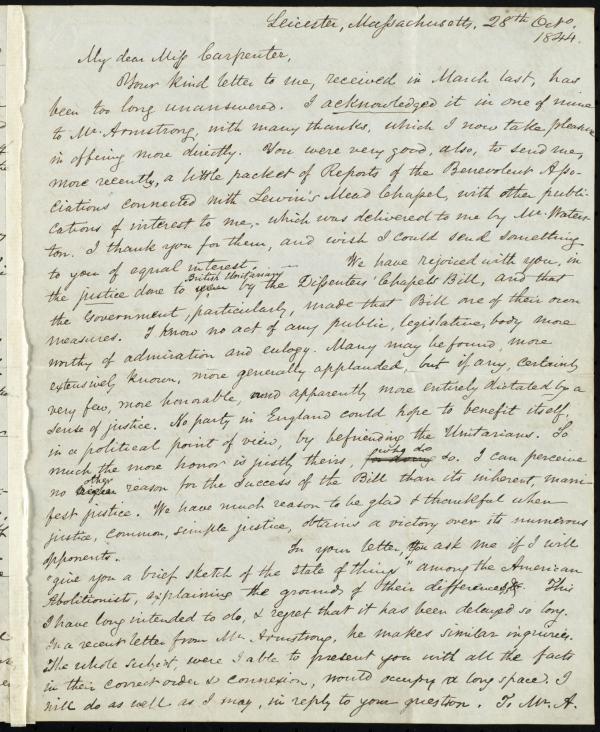 Leicester, Massachusetts, 28th Octo.
1844.
My dear Miss Carpenter,
Your kind letter to me, received in March last, has
been too long unanswered. I acknowledged it in one of mine
to Mr. Armstrong, with many thanks, which I now take pleasure
in offering more directly. You were very good, also, to send me,
more recently, a little packet of Reports of the Benevolent Asso-
ciations connected with Lewin's Mead Chapel, with other publi-
cations of interest to me,- which was delivered to me by Mr. Waters-
ton. I thank you for them, and wish I could send something
to you of equal interest. We have rejoiced with you, in
British Unitarians
the justice done to by the Dissenters' Chapels Bill, and that
the Government, particularly, made that Bill one of their own
measures. I know no act of any public, legislative, body more
worthy of admiration and eulogy. Many may be found, more
extensively known, more generally applauded, but if any, certainly
very few, more honorable, and apparently more entirely dictated by a
sense of justice. No party in England could hope to benefit itself,
in a political point of view, by befriending the Unitarians. So
much the more honor is justly theirs, who do so. I can perceive
no other reason for the success of the Bill than its inherent, mani-
fest justice. We have much reason to be glad & thankful when
justice, common, simple justice, obtains a victory over its numerous
opponents. In your letter, you ask me if I will
"give you a brief sketch of the state of things" among the American
Abolitionist, explaining the grounds of their differences &c. This
I have long intended to do, & regret that it has been delayed so long.
In a recent letter from Mr. Armstrong, he makes similar inquiries.
The whole subject, were I able to present you with all the facts
in their correct order & connexion, would occupy a long space. I
will do as well as I may, in reply to your question. To Mr. A.